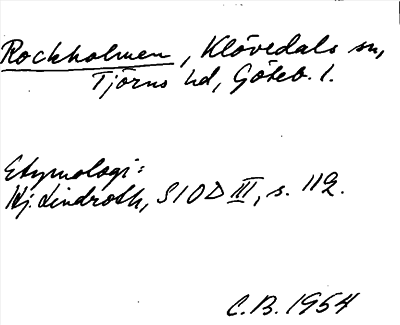 Rockholmen, Klövedals sn,
Tjörns hd, Göteb. l.
Etymologi:
Hj. Lindroth, SIOD III, s. 112.
C.B. 1954